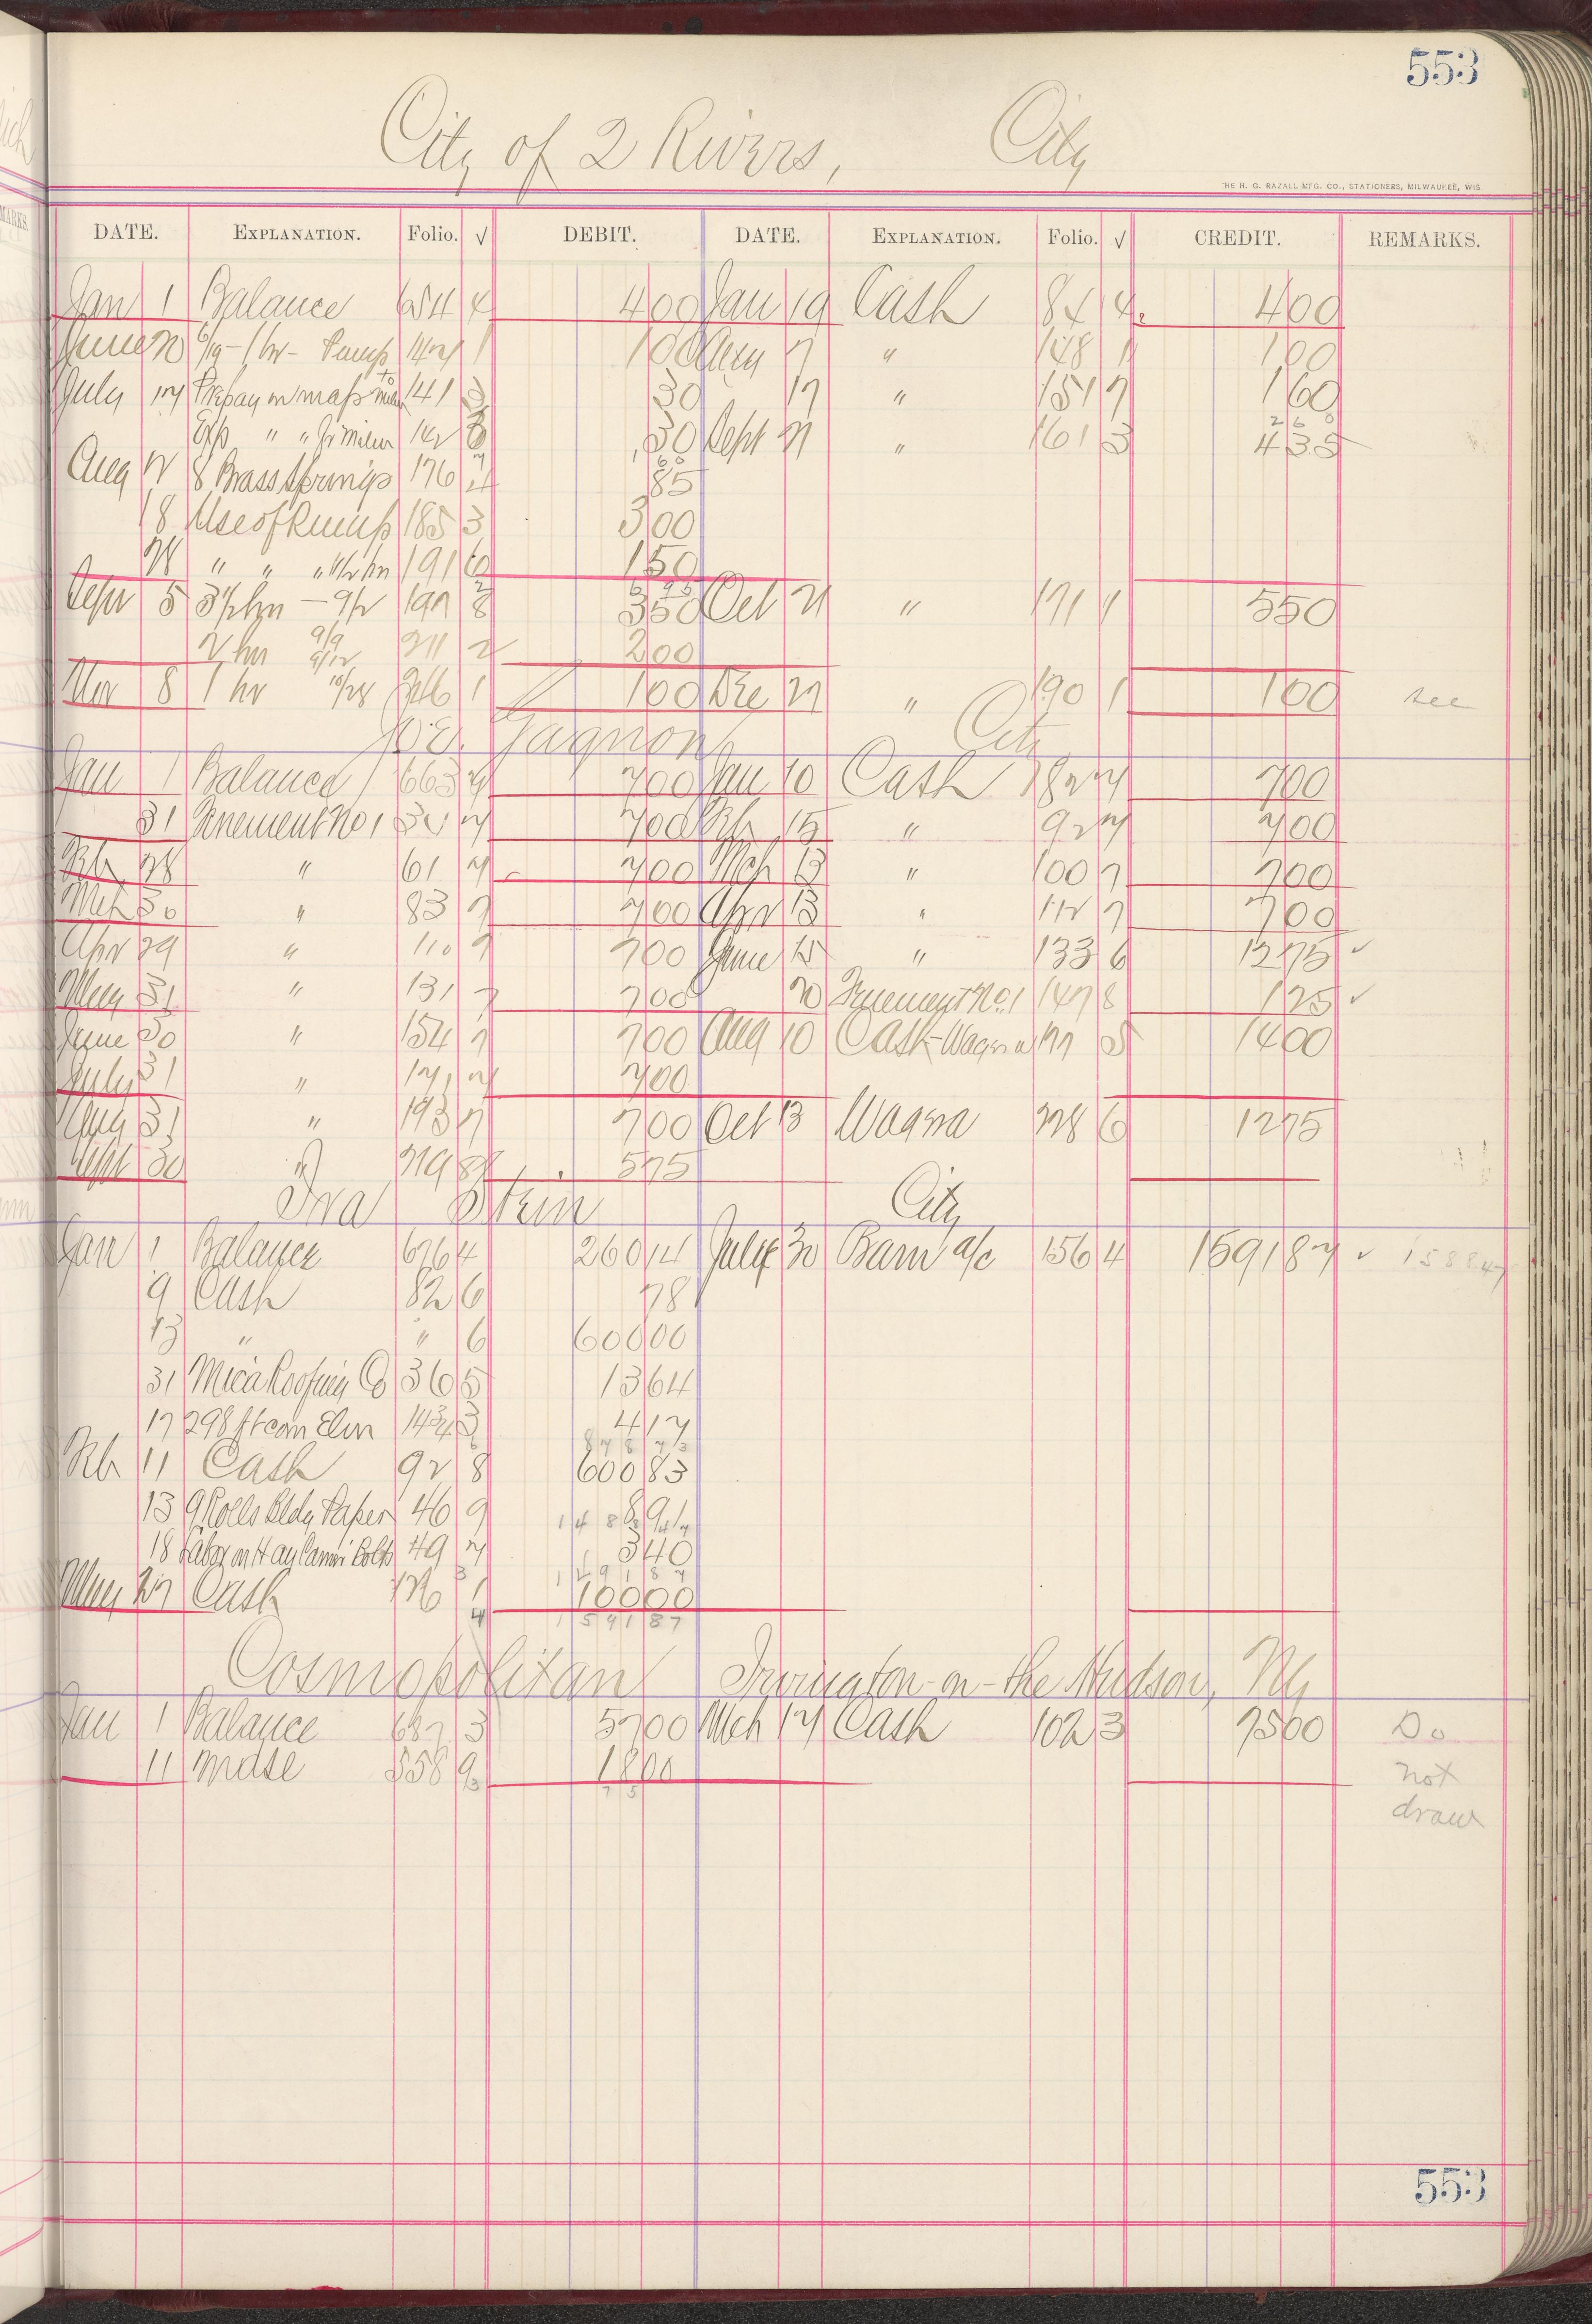 553
City of 2 Rivers, City
THE H. G. RAZALL MFG. CO., STATIONERS, MILWAUKEE, WIS.
DATE. EXPLANATION. Folio. √ DEBIT. DATE. EXPLANATION. Folio. √ CREDIT. REMARKS.
Jan 1 Balance 654 4 400 Jan 19 Cash 84 4 400
June 20 6/19 - 1 hr - Pump 142 1 100 Aug 7 " 148 1 100
July 17 141 3 30 17 " 151 7 160
" " 142 30 Sept 21 " 161 3 435
Aug 12 8 Brass Springs 176 85
18 Use of Pump 185 3 300
28 " " " 1 1/2 hrs 191 6 150
Sept 5 3 1/2 hrs - 9/2 197 8 350 Oct 21 " 171 550
2 hrs 9/9 9/12 211 2 200
Nov 8 1 hr 10/28 1 100 Dec 21 " 190 1 100 see
Gagnon City
Jan 1 Balance 663 7 700 Jan 10 Cash 82 7 700
31 Tenement No 1 7 700 Feb 15 " 92 7 700
Feb 28 " 61 7 700 Mch 13 " 100 7 700
Mch 30 " 83 7 700 Apr 13 " 112 7 700
Apr 29 " 110 7 700 June 15 " 133 6 1275 ✓
May 31 " 131 7 700 20 Tenement No. 1 147 8 125 ✓
June 30 " 154 7 700 Aug 10 Cash - Wagna 5 1400
July 31 " 171 7 700
Aug 31 " 193 7 700 Oct 13 Wagna 228 6 1275
Sept 30 " 219 8 575
Ira Stein City
Jan 1 Balance 676 4 260 14 July 30 Barn a/c 156 4 1591 87 ✓ 1588 47
9 Cash 82 6 78
13 " " 6 600 00
31 Mica Roofing Co 36 5 13 64
17 298 ft com Elm 143 3 4 17
878 73
Feb 11 Cash 92 8 600 83
13 9 Rolls Bldg Paper 46 9 8 91
18 Labor on Hay Carrier Bolts 49 7 3 40
1491 87
May 27 Cash 1 100 00
1591 87
Cosmopolitan Irvington-on-the-Hudson, NY
Jan 1 Balance 687 3 57 00 Mch 17 Cash 102 3 75 00 Do
11 Mdse 558 9 18 00 not
75
draw
553